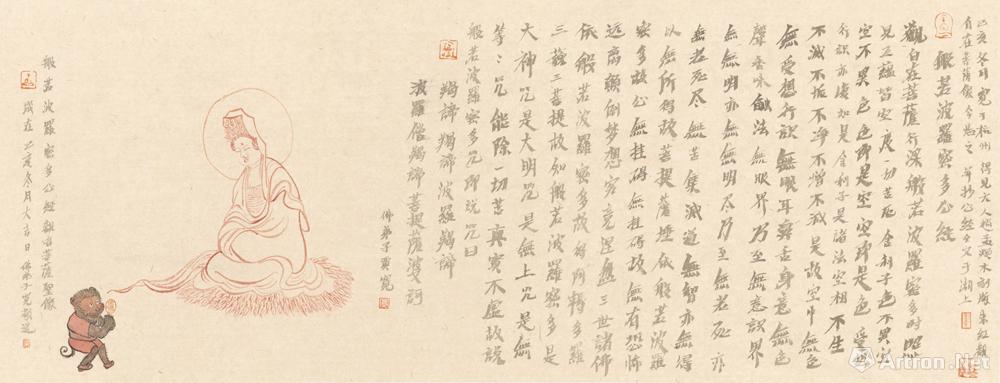 般若波羅蜜多心經
觀自在菩薩行深般若波羅蜜多時照
見五蘊皆空度一切苦厄舍利子色不異空
空不異色色即是空空即是色受想
行識亦復如是舍利子是諸法空相不生
不滅不垢不淨不增不減是故空中無色
無受想行識無眼耳鼻舌身意無色
聲香味觸法無眼界乃至無意識界
無無明亦無無明盡乃至無老死亦
無老死盡無苦集滅道無智亦無得
以無所得故菩提薩埵依般若波羅
蜜多故心無挂碍無挂碍故無有恐怖
遠離顛倒夢想究竟涅盤三世諸佛
依般若波羅蜜多故得阿耨多羅
三藐三菩提故知般若波羅蜜多是
大神咒是大明咒是無上咒是無
等々咒能除一切苦真實不虛故說
般若波羅蜜多咒即說咒曰
揭諦揭諦波羅揭諦
波羅僧揭諦菩提薩婆訶
佛弟子賈寬
般若波羅蜜多心經觀音菩薩聖像
歲在乙亥冬月大吉日
Artron.Net